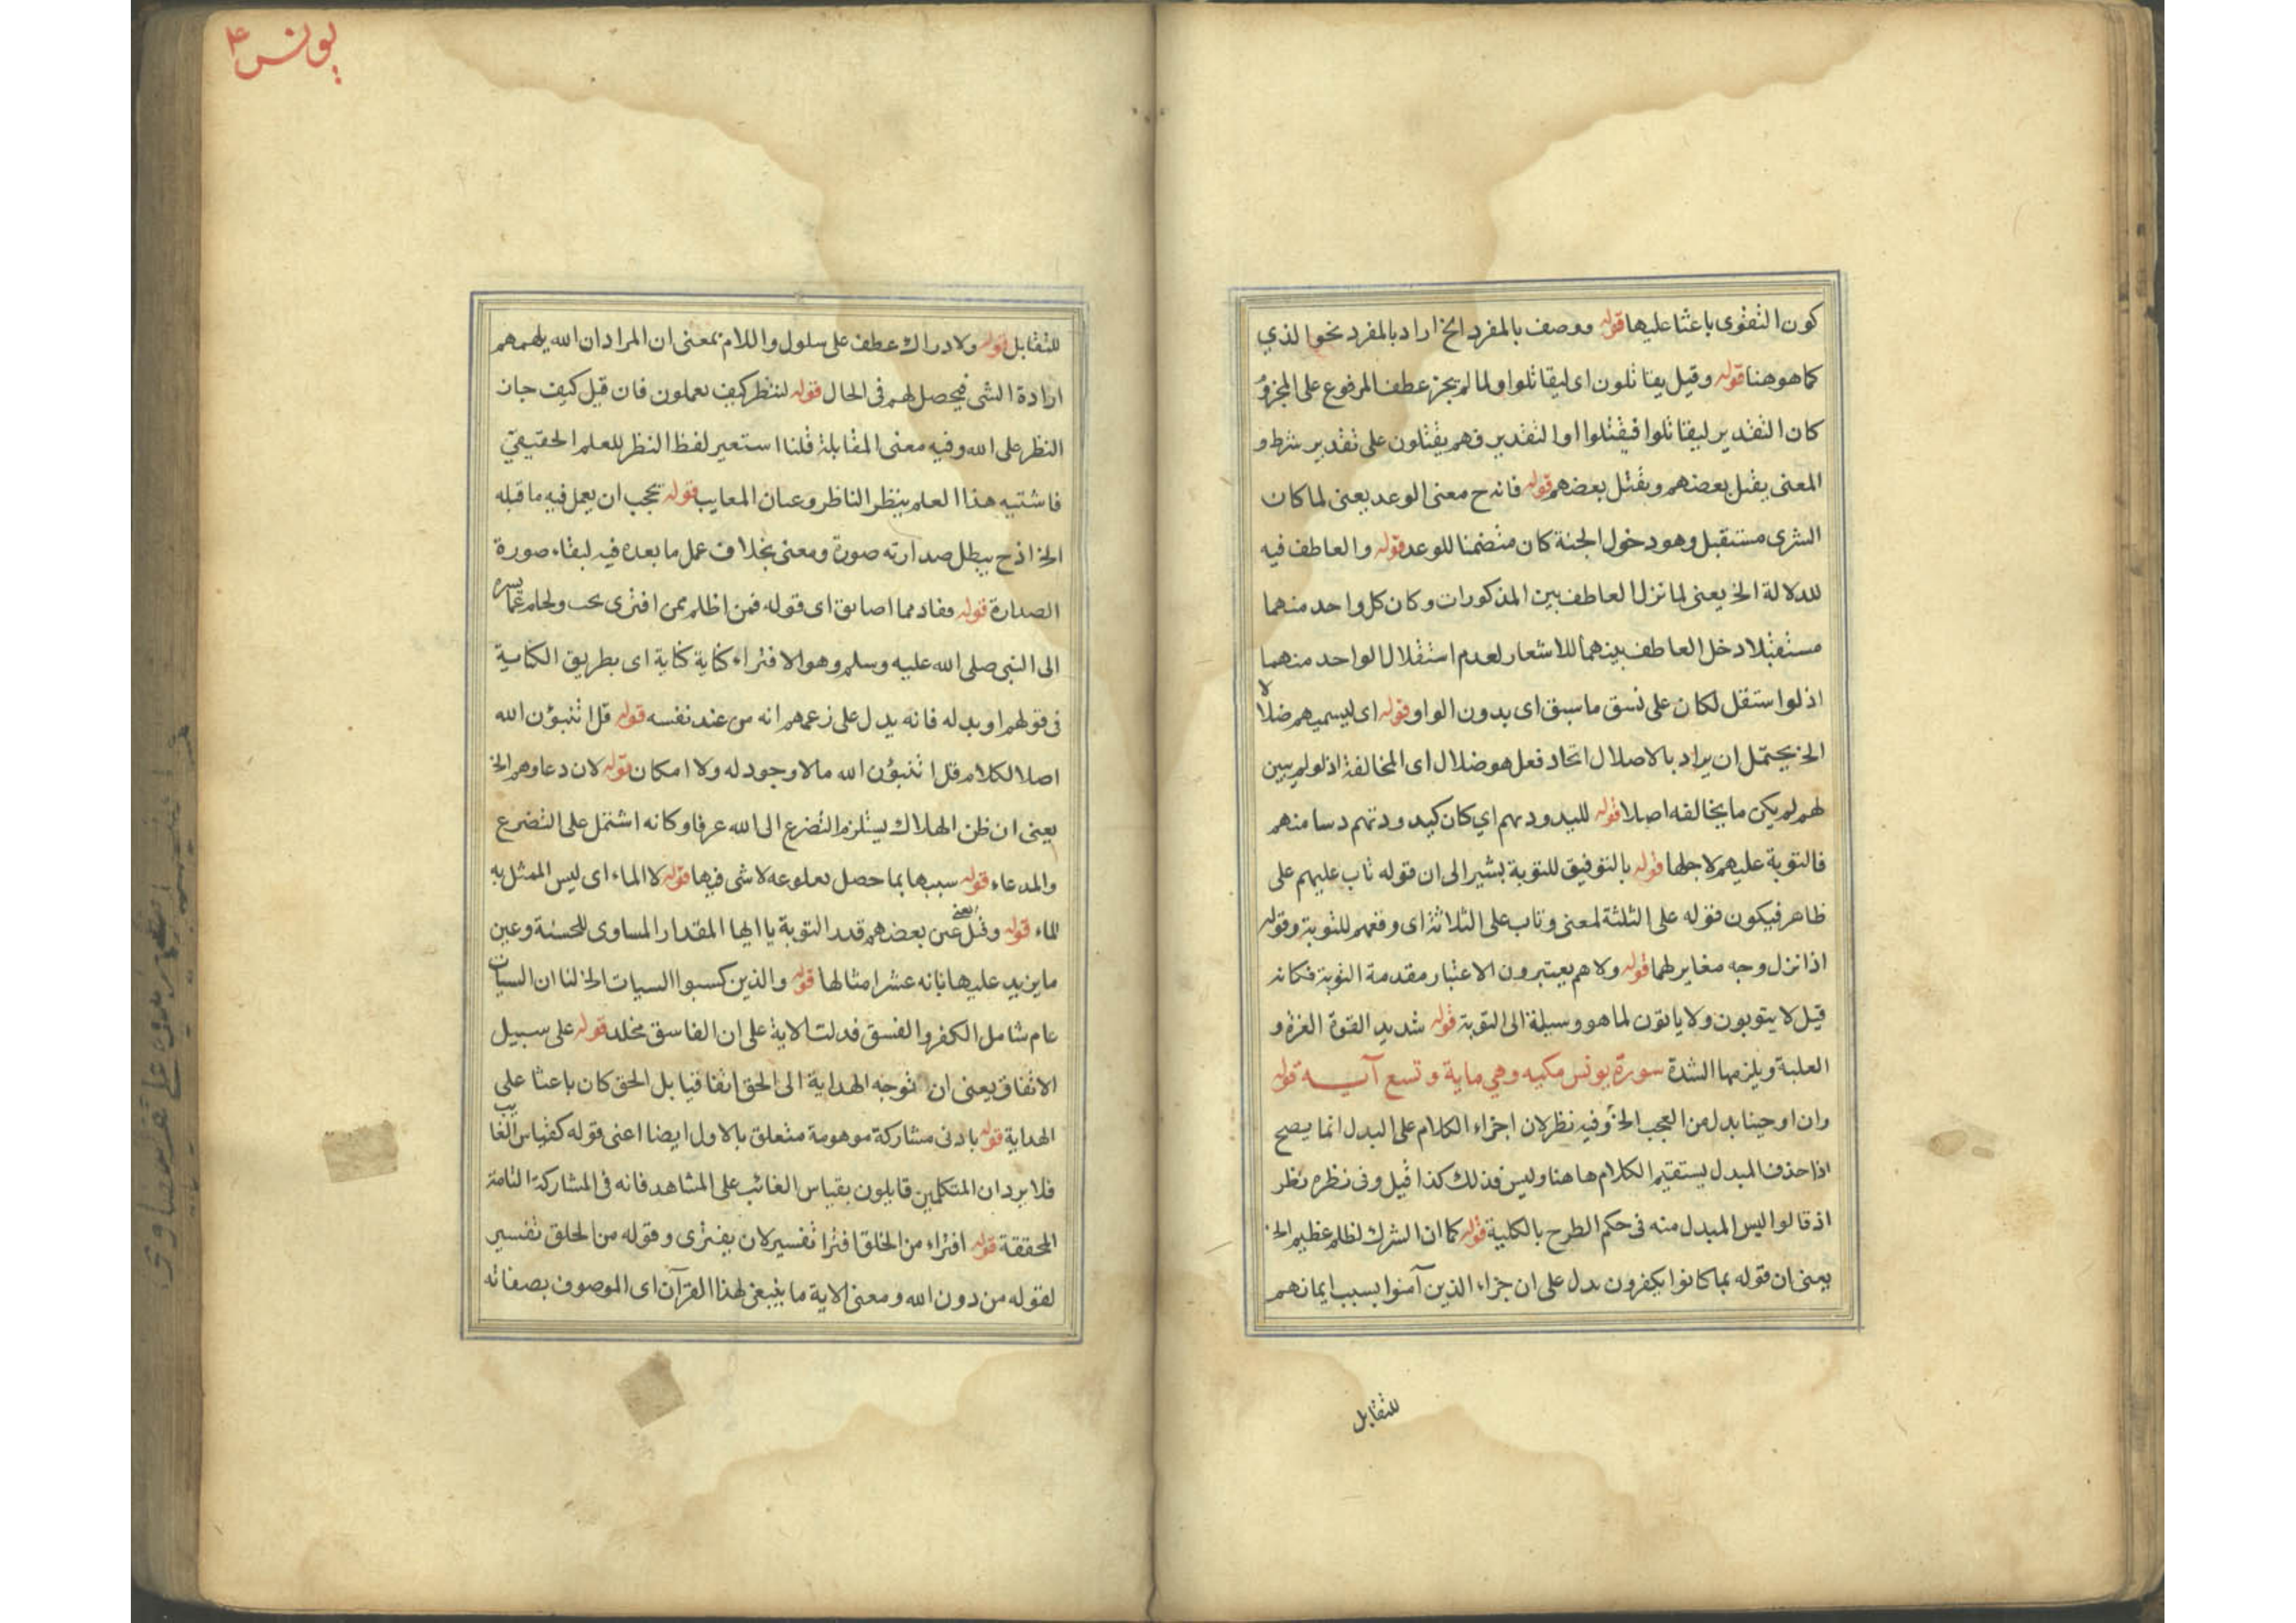 كون التقوى باعثا عليها قوله ووصف بالمفرد الخ اراد بالمفرد نحو الذي
كما هو هنا قوله وقيل يقاتلون اى ليقاتلوا ولما لم يجز عطف المرفوع على المجزو
كان التقدير ليقاتلوا فيقتلوا او التقدير فهم يقتلون على تقدير شرط و
المعنى يقتل بعضهم ويقتل بعضهم قوله فانه ح معنى الوعد يعنى لما كان
البشرى مستقبل وهو دخول الجنة كان متضمنا للوعد قوله والعاطف فيه
للدلالة الخ يعنى لما نزل العاطف بين المذكورات وكان كل واحد منهما
مستقبلا دخل العاطف بينهما للاشعار لعدم استقلال الواحد منهما
اذ لو استقل لكان على نسق ما سبق اى بدون الواو قوله اى ليسميهم ضلالا
الخ يحتمل ان يراد بالاضلال اتحاد فعل هو ضلال اى المخالفة اذ لو لم يبين
لهم لم يكن ما يخالفه اصلا قوله اي كان كيدودتهم دسا منهم
فالتوبة عليهم لاجلها قوله بالتوفيق للتوبة يشير الى ان قوله تاب عليهم على
ظاهر فيكون قوله على الثلثة لمعنى وتاب على الثلاثة اى وفقهم للتوبة وقوله
اذا نزل وجه مغاير لهما قوله ولا هم يعتبرون الاعتبار مقدمة التوبة فكانه
قيل لا يتوبون ولا ياتون لما هو وسيلة الى التوبة قوله شديد القوة الغزة و
الغلبة ويلزمها الشدة سورة يونس مكيه وهي ماية وتسع آيـــه قوله
وان اوحينا بدل من العجب الخ وفيه نظر لان اجزاء الكلام على البدل انما يصح
اذا حذف المبدل يستقيم الكلام ها هنا وليس فذلك كذا قيل وفى نظره نظر
اذ قالوا ليس المبدل منه فى حكم الطرح بالكلية قوله كما ان الشرك لظلم عظيم الخ
يعنى ان قوله بما كانوا يكفرون يدل على ان جزاء الذين آمنوا بسبب ايمانهم
للتقابل
يونس ع
للتقابل قوله ولادراك عطف على سلول واللام بمعنى ان المراد ان الله يلهمهم
ارادة الشى فيحصل لهم فى الحال قوله لننظر كيف تعملون فان قيل كيف جاز
النظر على الله وفيه معنى المقابلة قلنا استعير لفظ النظر للعلم الحقيقىّ
فاشتبه هذا العلم بنظر الناظر وعيان المعايب قوله يجب ان يعمل فيه ما قبله
الخ اذ ح يبطل صدارته صورة ومعنى بخلاف عمل ما بعده فيه لبقاء صورة
الصدارة قوله مما اضافوا اى قوله فمن اظلم ممن افترى
الى النبى صلى الله عليه وسلم وهو الافتراء كناية كناية اى بطريق الكناية
فى قولهم او بدله فانه يدل على زعمهم انه من عند نفسه قوله قل اتنبؤن الله
اصلا لكلام قل اتنبؤن الله مالا وجود له ولا امكان قوله لان دعاوهم الخ
يعنى ان ظن الهلاك يستلزم التضرع الى الله عرفا وكانه اشتمل على التضرع
والدعاء قوله سببها بما حصل لاشى فيها قوله لا الماء اى ليس الممثل به
الماء قوله وقيل عين بعضهم قدر التوبة يا ايها المقدار المساوى للحسنة وعين
ما يزيد عليها بانه عشر امثالها قوله والذين كسبوا السيات الخ لنا ان السيات
عام شامل الكفر والفسق فدلت الاية على ان الفاسق مخلد قوله على سبيل
الاتفاق يعنى ان توجه الهداية الى الحق اتفاقيا بل الحق كان باعثا على
الهداية قوله بادنى مشاركة موهومة متعلق بالاول ايضا اعنى قوله كقياس الغايب
فلا يرد ان المتكلمين قايلون بقياس الغائب على المشاهد فانه فى المشاركة التامة
المحققة قوله افتراء من الخلق افترا تفسير لان يفترى وقوله من الخلق تفسير
لقوله من دون الله ومعنى الاية ما ينبغى لهذا القرآن اى الموصوف بصفاته